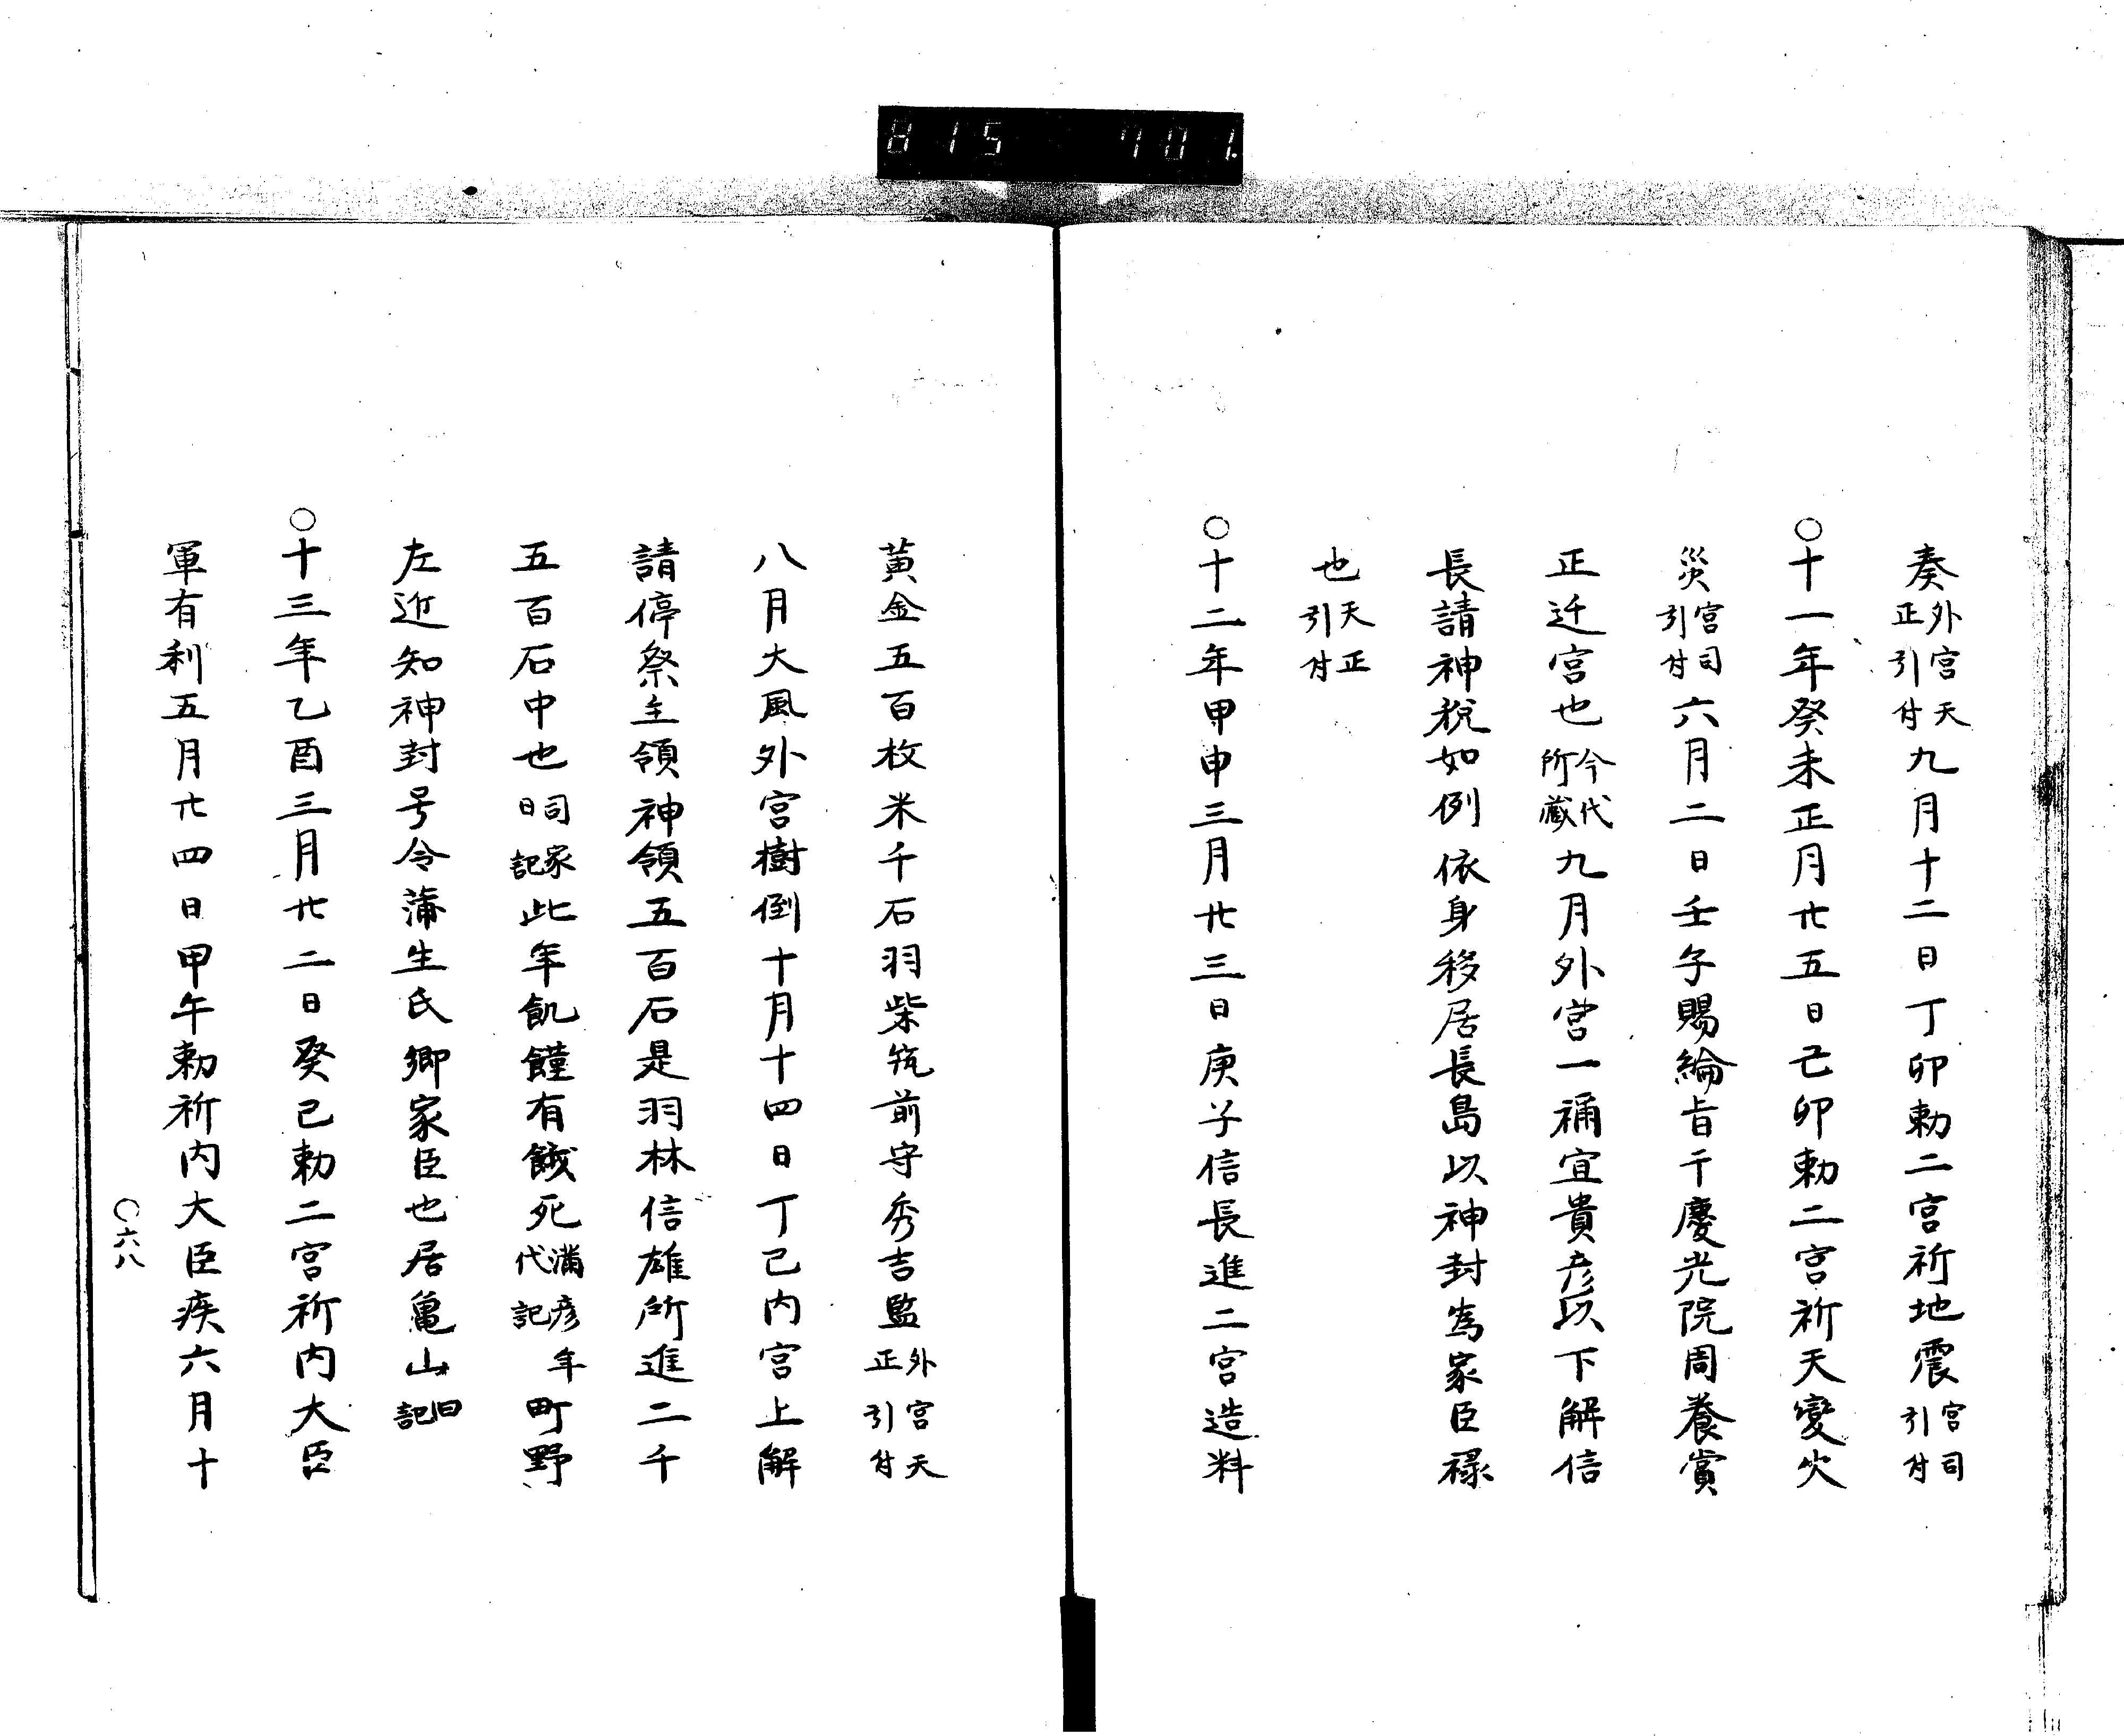 815 401.
奏外宮天正引付九月十二日丁卯勅二宮祈地震宮司引付
○十一年癸未正月廿五日己卯勅二宮祈天變火
災宮司引付六月二日壬子賜綸旨于慶光院周養賞
正迁宮也今代所蔵九月外宮一禰宜貴彦以下解信
長請神税如例依身移居長島以神封為家臣禄
也天正引付
○十二年甲申三月廿三日庚子信長進二宮造料
黄金五百枚米千石羽柴筑前守秀吉監外宮天正引付
八月大風外宮樹倒十月十四日丁己内宮上解
請停祭主領神領五百石是羽林信雄所進二千
五百石中也司家日記此年飢饉有餓死満彦年代記町野
左近知神封号令蒲生氏卿家臣也居亀山旧記
○十三年乙酉三月廿二日癸己勅二宮祈内大臣
軍有利五月廿四日甲午勅祈内大臣疾六月十
○六八